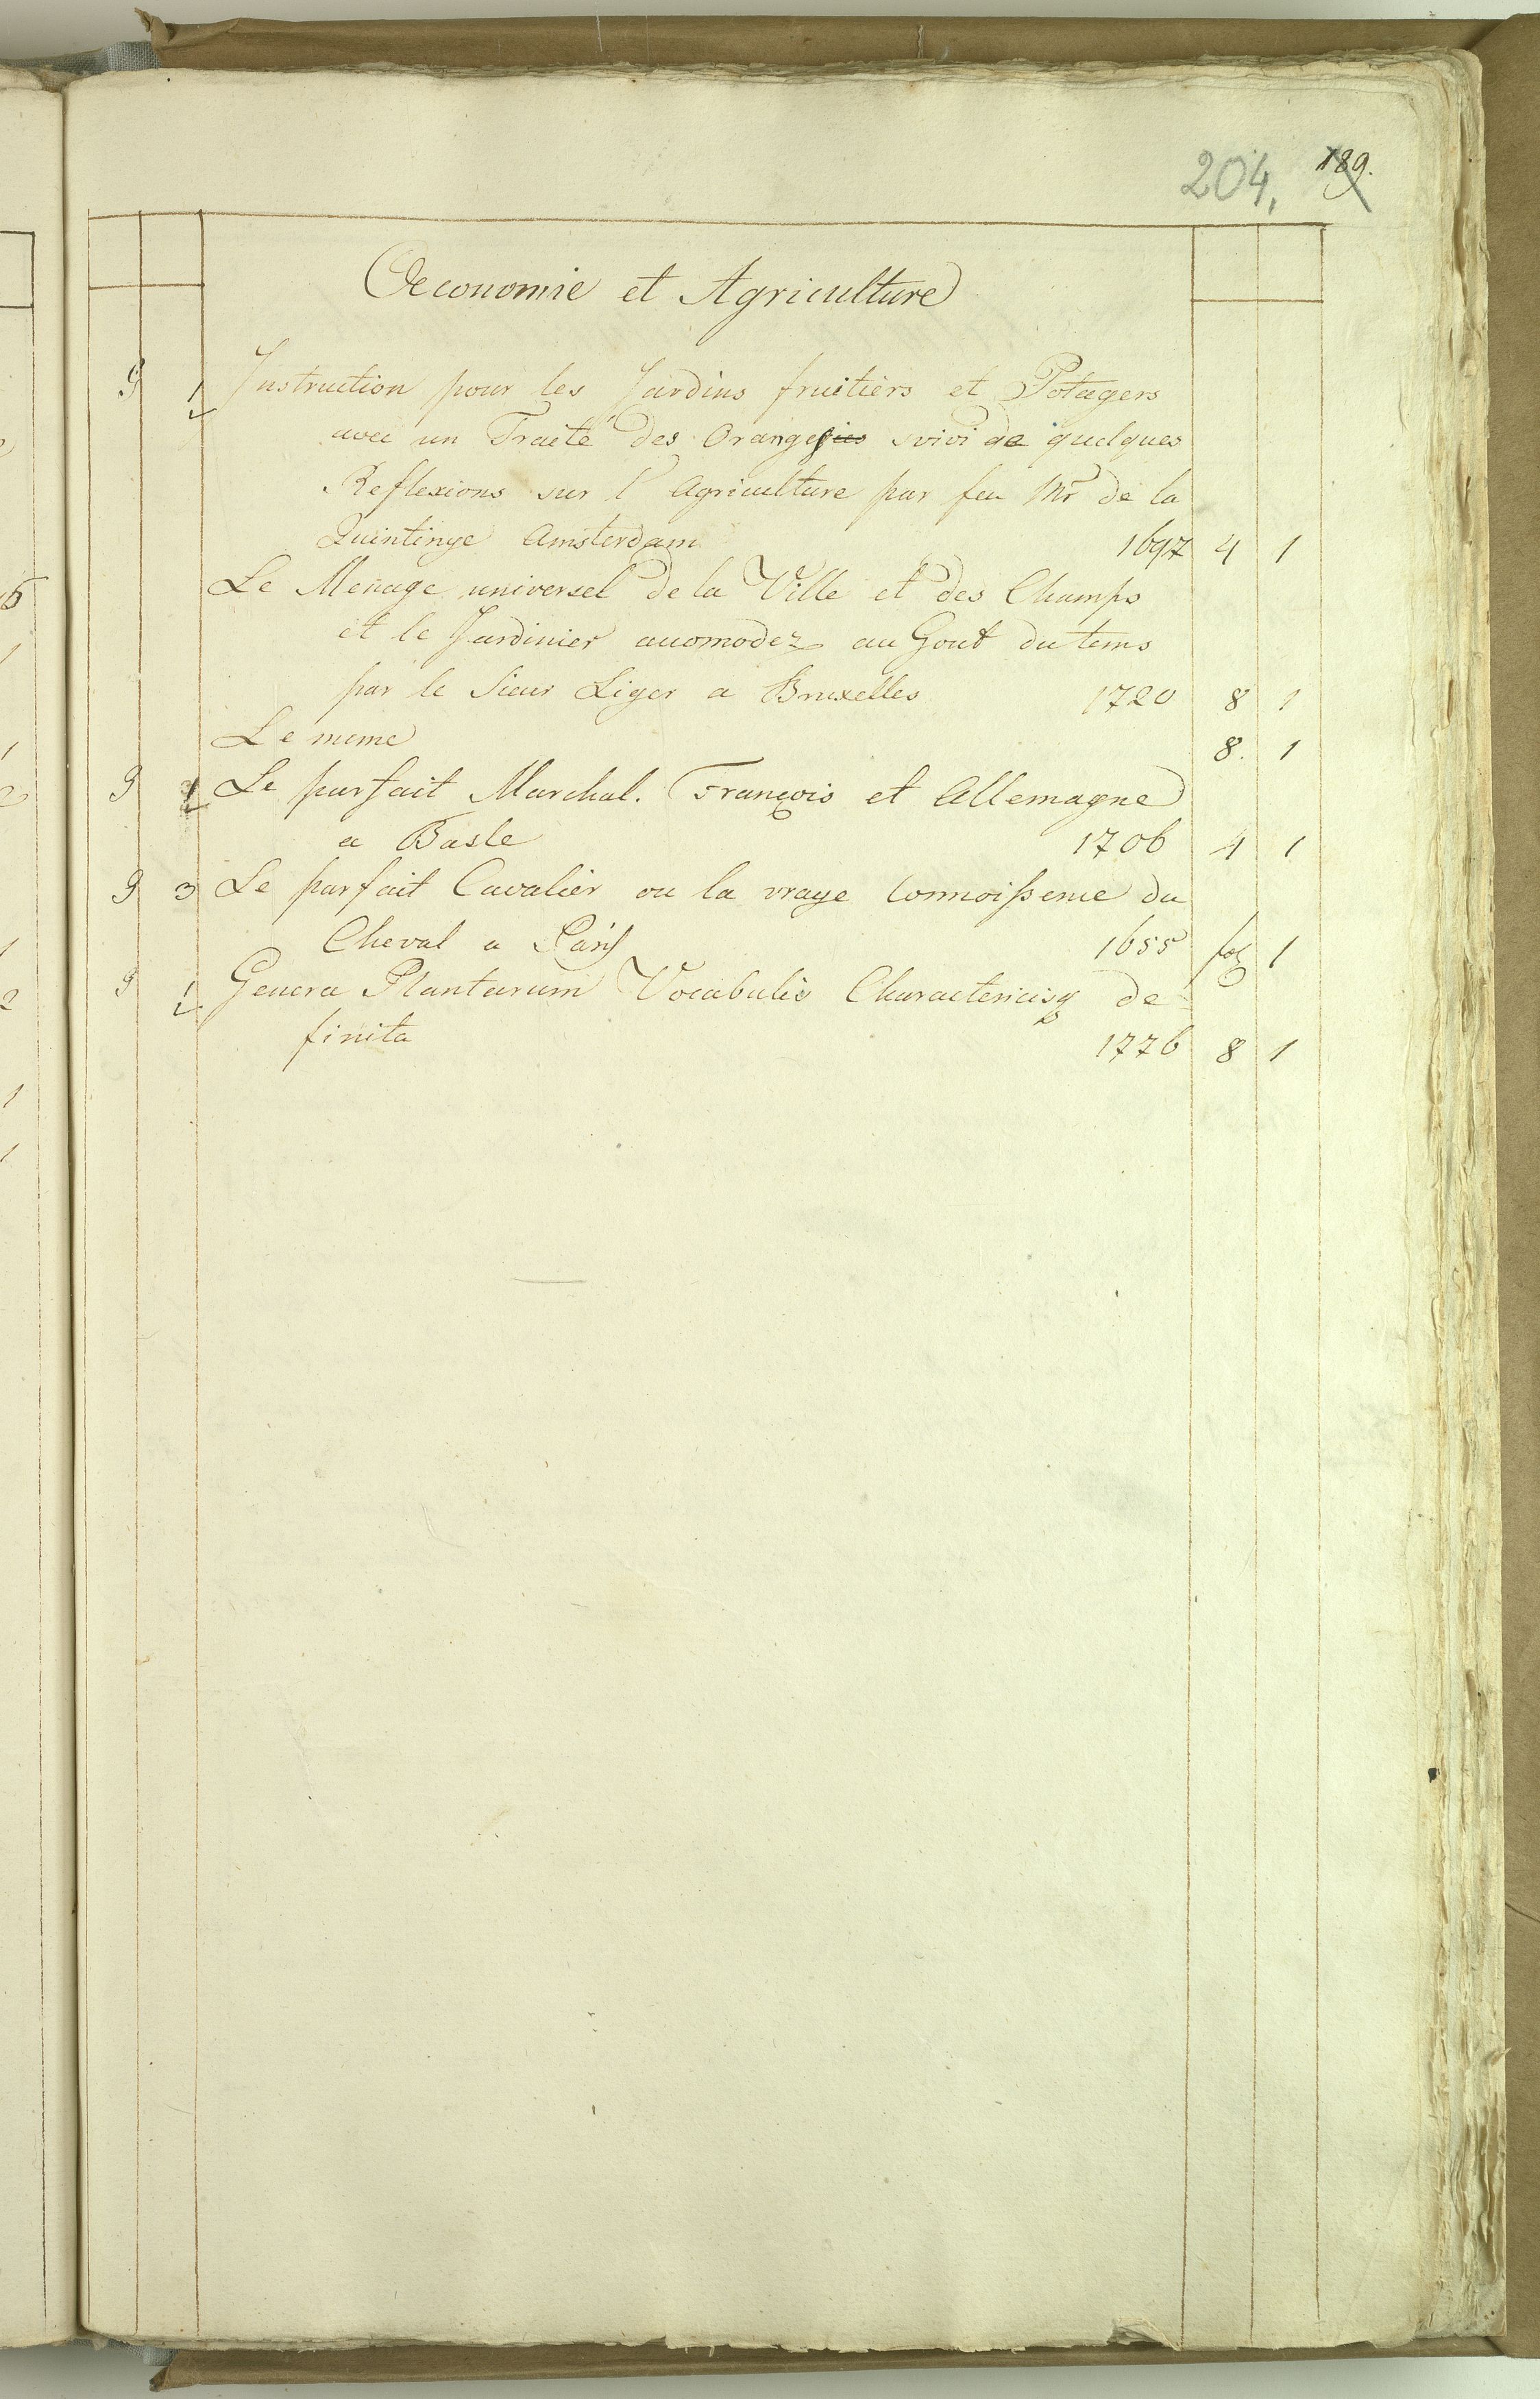 204. 189.
Oeconomie et Agriculture
9 1 Instruction pour les Jardins fruitiers et Potagers
avec un Traite des Oranges suivi de quelques
Reflexions sur l'Agriculture par feu Mr de la
Quintinye Amsterdam 1697 4 1
Le Menage universel de la Ville et des Champs
et le Jardinier accomodez au Gout du tems
par le Sieur Liger a Bruxelles 1720 8 1
Le meme 8. 1
9 1 Le parfait Marchal. François et Allemagne
a Basle 1706 4 1
9 3 Le parfait Cavalier ou la vraye Connoissence du
Cheval a Paris 1655 fol 1
9 1 Genera Plantarum Vocabulis Charactericisq de
finita 1776 8 1